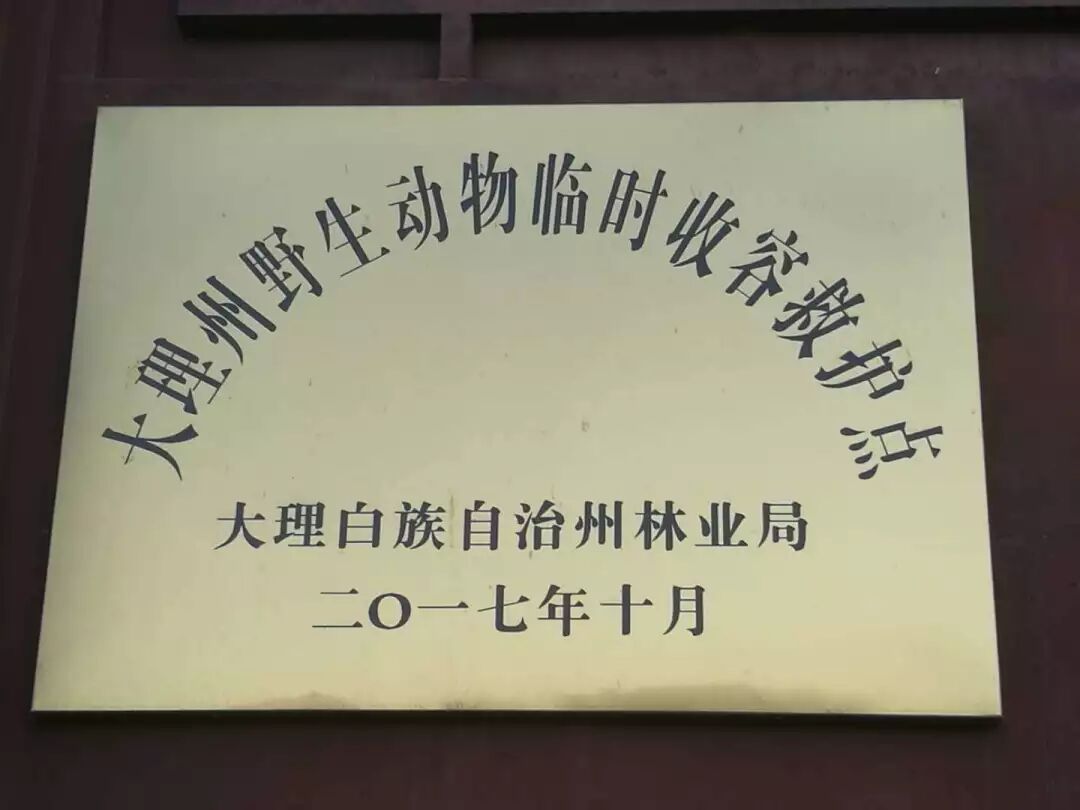 大理州野生动物临时收容救护点
大理白族自治州林业局
二〇一七年十月